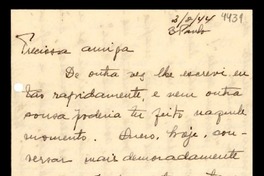 3/8/44 4431
S. Paulo
Preciosa amiga
De outra vez lhe escrevi en
tão rapidamente, e nem outra
cousa poderia ter feito naquele
momento. Quero, hoje, con-
versar mais demoradamente